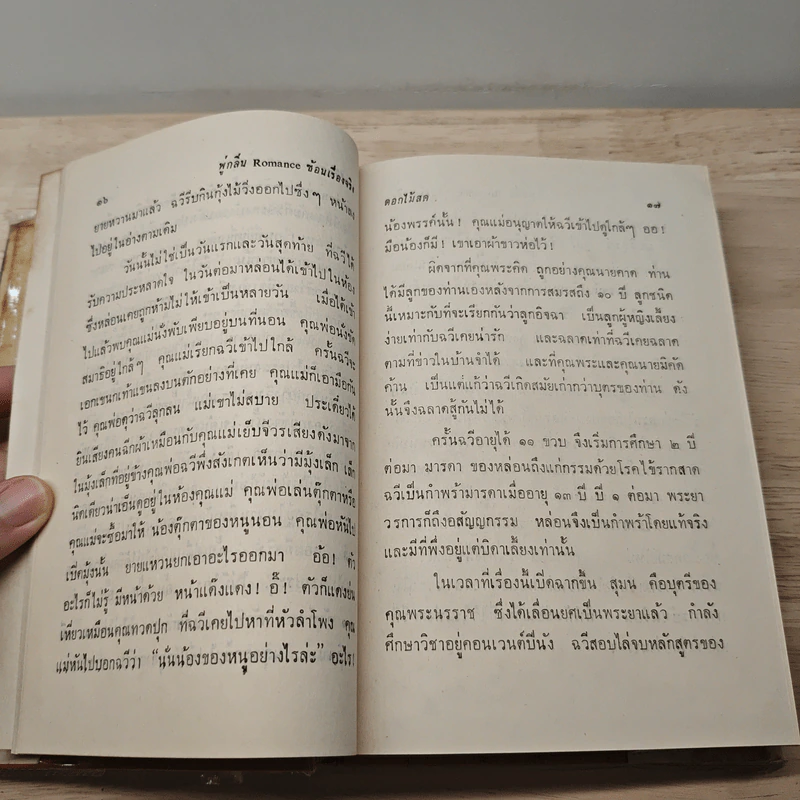 ๑๖
พู่กลิ่น Romance ซ้อนเรื่องจริง
ยายหวานมาแล้ว ฉวีรีบกินกุ้งไม้วิ่งออกไปซึ่งๆ หน้า
ไปอยู่ในอ่างตามเดิม
วันนั้นไม่ใช่เป็นวันแรกและวันสุดท้าย ที่ฉวีได้
รับความประหลาดใจ ในวันต่อมาหล่อนได้เข้าไปในห้อง
ซึ่งหล่อนเคยถูกห้ามไม่ให้เข้าเป็นหลายวัน เมื่อได้เข้า
ไปแล้วพบคุณแม่นั่งพับเพียบอยู่บนที่นอน คุณพ่อนั่งขัด
สมาธิอยู่ใกล้ๆ คุณแม่เรียกฉวีเข้าไปใกล้ ครั้นฉวีจะ
เอกเขนกเท้าแขนลงบนตักอย่างที่เคย คุณแม่ก็เอามือกัน
ไว้ คุณพ่อดุว่าฉวีลุกลน แม่เขาไม่สบาย ประเดี๋ยวได้
ยินเสียงคนฉีกผ้าเหมือนกับคุณแม่เย็บจีวรเสียงดังมาจาก
ในมุ้งเล็กที่อยู่ข้างคุณพ่อฉวีพึ่งสังเกตเห็นว่ามีมุ้งเล็ก เล็ก
นิดเดียวน่าเอ็นดูอยู่ในห้องคุณแม่ คุณพ่อเล่นตุ๊กตาหรือ
คุณแม่จะซื้อมาให้ น้องตุ๊กตาของหนูนอน คุณพ่อหันไป
เปิดมุ้งนั้น ยายแหวนยกเอาอะไรออกมา อ้อ! ตัว
อะไรก็ไม่รู้ มีหน้าด้วย หน้าแด๊งแดง! อี๊! ตัวก็แดงย่น
เหี่ยวเหมือนคุณทวดปุก ที่ฉวีเคยไปหาที่หัวลำโพง คุณ
แม่หันไปบอกฉวีว่า “นั่นน้องของหนูอย่างไรล่ะ” อะไร!
ดอกไม้สด
๑๗
น้องพรรค์นั้น! คุณแม่อนุญาตให้ฉวีเข้าไปดูใกล้ๆ ออ!
มือน้องก็มี! เขาเอาผ้าขาวห่อไว้!
ผิดจากที่คุณพระคิด ถูกอย่างคุณนายคาด ท่าน
ได้มีลูกของท่านเองหลังจากการสมรสถึง ๑๐ ปี ลูกชนิด
นี้เหมาะกับที่จะเรียกกันว่าลูกอิจฉา เป็นลูกผู้หญิงเลี้ยง
ง่ายเท่ากับฉวีเคยน่ารัก และฉลาดเท่าที่ฉวีเคยฉลาด
ตามที่ข่าวในบ้านจำได้ และที่คุณพระและคุณนายมิคัด
ค้าน เป็นแต่แก้ว่าฉวีเกิดสมัยเก่ากว่าบุตรของท่าน ดัง
นั้นจึงฉลาดสู้กันไม่ได้
ครั้นฉวีอายุได้ ๑๑ ขวบ จึงเริ่มการศึกษา ๒ ปี
ต่อมา มารดา ของหล่อนถึงแก่กรรมด้วยโรคไข้รากสาด
ฉวีเป็นกำพร้ามารดาเมื่ออายุ ๑๓ ปี ปี ๑ ต่อมา พระยา
วรการก็ถึงอสัญญกรรม หล่อนจึงเป็นกำพร้าโดยแท้จริง
และมีที่พึ่งอยู่แต่บิดาเลี้ยงเท่านั้น
ในเวลาที่เรื่องนี้เปิดฉากขึ้น สุมน คือบุตรีของ
คุณพระนรราช ซึ่งได้เลื่อนยศเป็นพระยาแล้ว กำลัง
ศึกษาวิชาอยู่คอนเวนต์ปีนัง ฉวีสอบไล่จบหลักสูตรของ